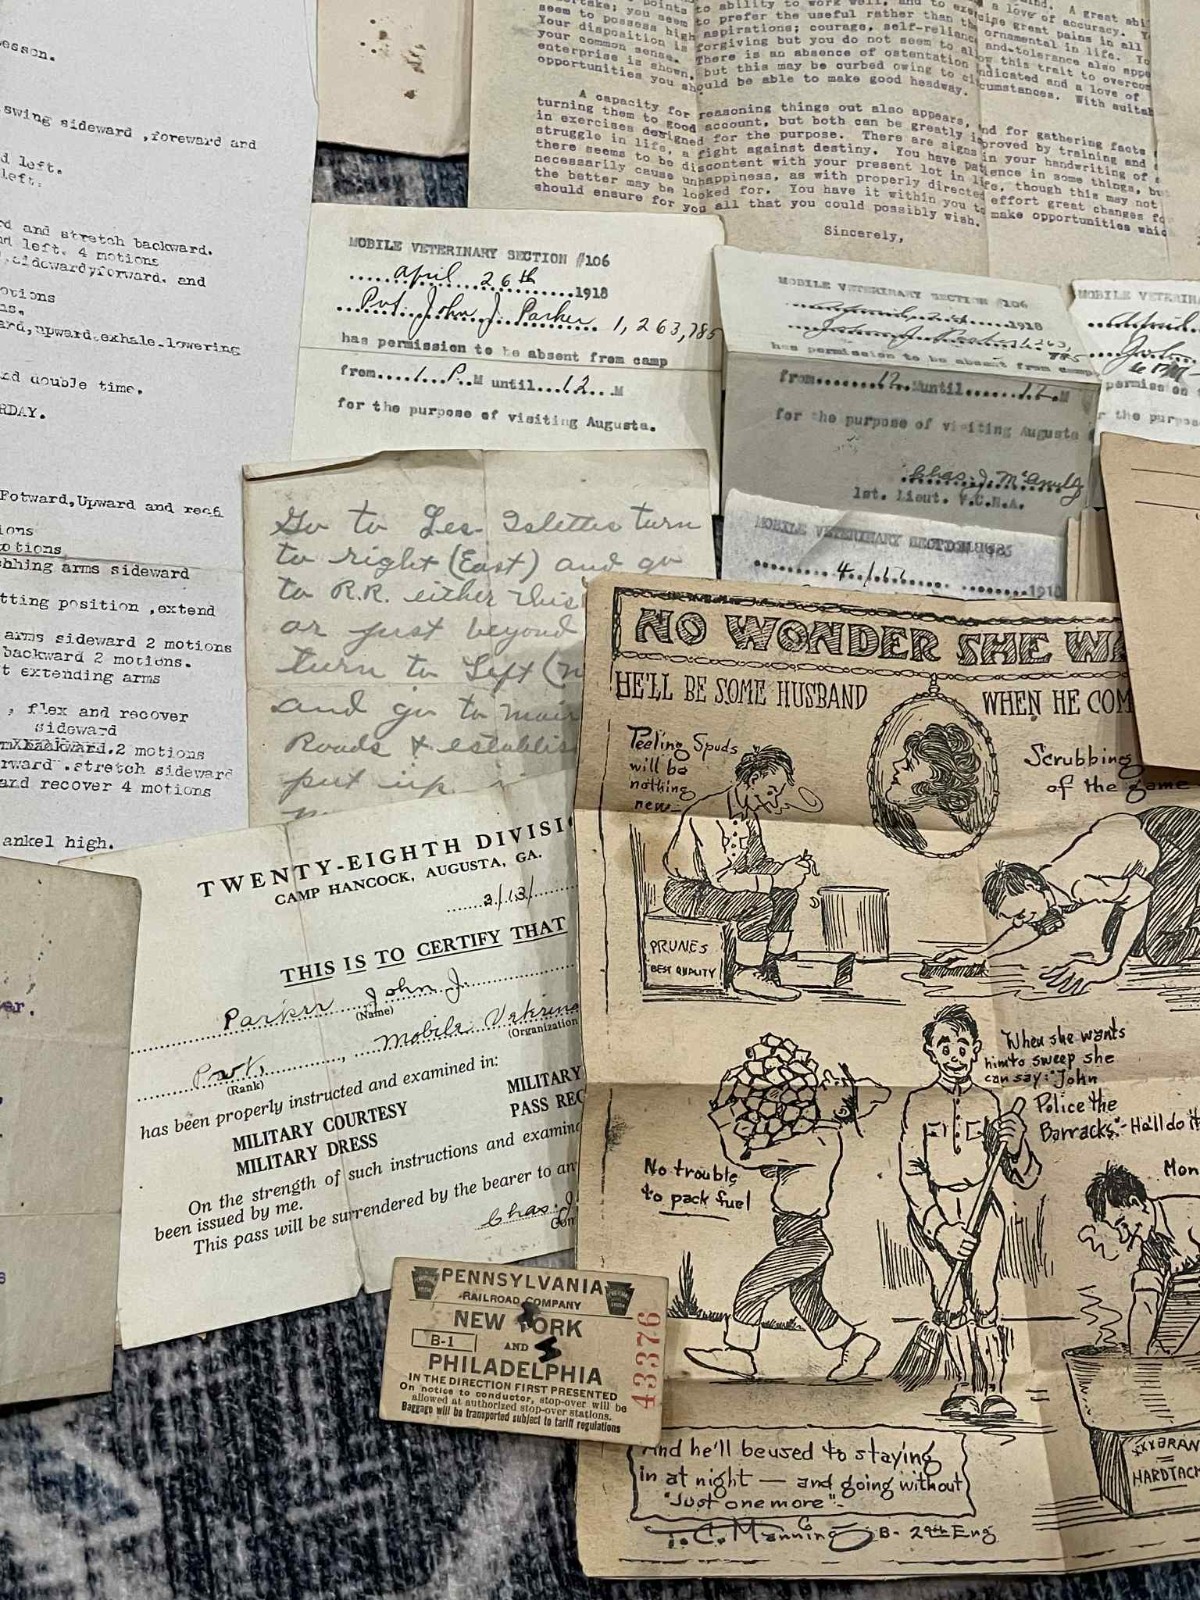 esson.
swing sideward ,foreward and
d left.
left.
d and stretch backward.
d left. 4 motions
sidewardyforward. and
otions
ns.
ard,upward.exhale.lowering
nd double time.
RDAY.
Fotward,Upward and reck
ions
otions
hhing arms sideward
tting position ,extend
arms sideward 2 motions
backward 2 motions.
t extending arms
, flex and recover
sideward
backward.2 motions
rward .stretch sideward
and recover 4 motions
ankel high.
to ability to work well, and to
take; you seem to prefer the useful rather than the ornamental in life.
seem to possess high aspirations; courage, self-reliance and tolerance also appe
Your disposition is forgiving but you do not seem to allow this trait to overcom
your common sense. There is an absence of ostentation indicated and a love of
enterprise is shown, but this may be curbed owing to circumstances. With suitab
opportunities you should be able to make good headway.
A capacity for reasoning things out also appears, and for gathering facts
turning them to good account, but both can be greatly improved by training and
in exercises designed for the purpose. There are signs in your handwriting of a
struggle in life, a fight against destiny. You have patience in some things, bu
there seems to be discontent with your present lot in life, though this may not
necessarily cause unhappiness, as with properly directed effort great changes fo
the better may be looked for. You have it within you to make opportunities whic
should ensure for you all that you could possibly wish.
Sincerely,
MOBILE VETERINARY SECTION #106
April 26th 1918
Pvt. John J. Parker 1,263,785
has permission to be absent from camp
from....1.P.M until...12...M
for the purpose of visiting Augusta.
MOBILE VETERINARY SECTION #106
1918
has permission to be absent from camp
from........12..M until......12.M
for the purpose of visiting Augusta
Chas. J. McAnulty
1st. Lieut. V.C.N.A.
MOBILE VETERINA
April
John
permission
r the purpos
MOBILE VETERINARY SECTION
4/
191
Go to Les Islettes turn
to right (East) and go
to R.R. either this
or just beyond
turn to Left (n
and go to main
Roads & establis
put up
TWENTY-EIGHTH DIVISI
CAMP HANCOCK, AUGUSTA, GA.
3/13/
THIS IS TO CERTIFY THAT
Parker John J.
(Name)
Pvt., Mobile Veterina
(Rank) (Organization
has been properly instructed and examined in:
MILITARY COURTESY MILITARY
MILITARY DRESS PASS REG
On the strength of such instructions and examina
been issued by me.
This pass will be surrendered by the bearer to an
Chas. J.
Com
er.
s
PENNSYLVANIA
RAILROAD COMPANY
NEW YORK
B-1 AND
PHILADELPHIA
IN THE DIRECTION FIRST PRESENTED
On notice to conductor, stop-over will be
allowed at authorized stop-over stations.
Baggage will be transported subject to tariff regulations
43376
NO WONDER SHE WA
HE'LL BE SOME HUSBAND WHEN HE COM
Peeling Spuds
will be
nothing
new—
Scrubbing
of the game
PRUNES
BEST QUALITY
When she wants
him to sweep she
can say: "John
Police the
Barracks"-He'll do it
No trouble
to pack fuel
Mon
XXXBRAN
HARDTACK
And he'll be used to staying
in at night — and going without
"Just one more"-
T. C. Manning B- 29th Eng